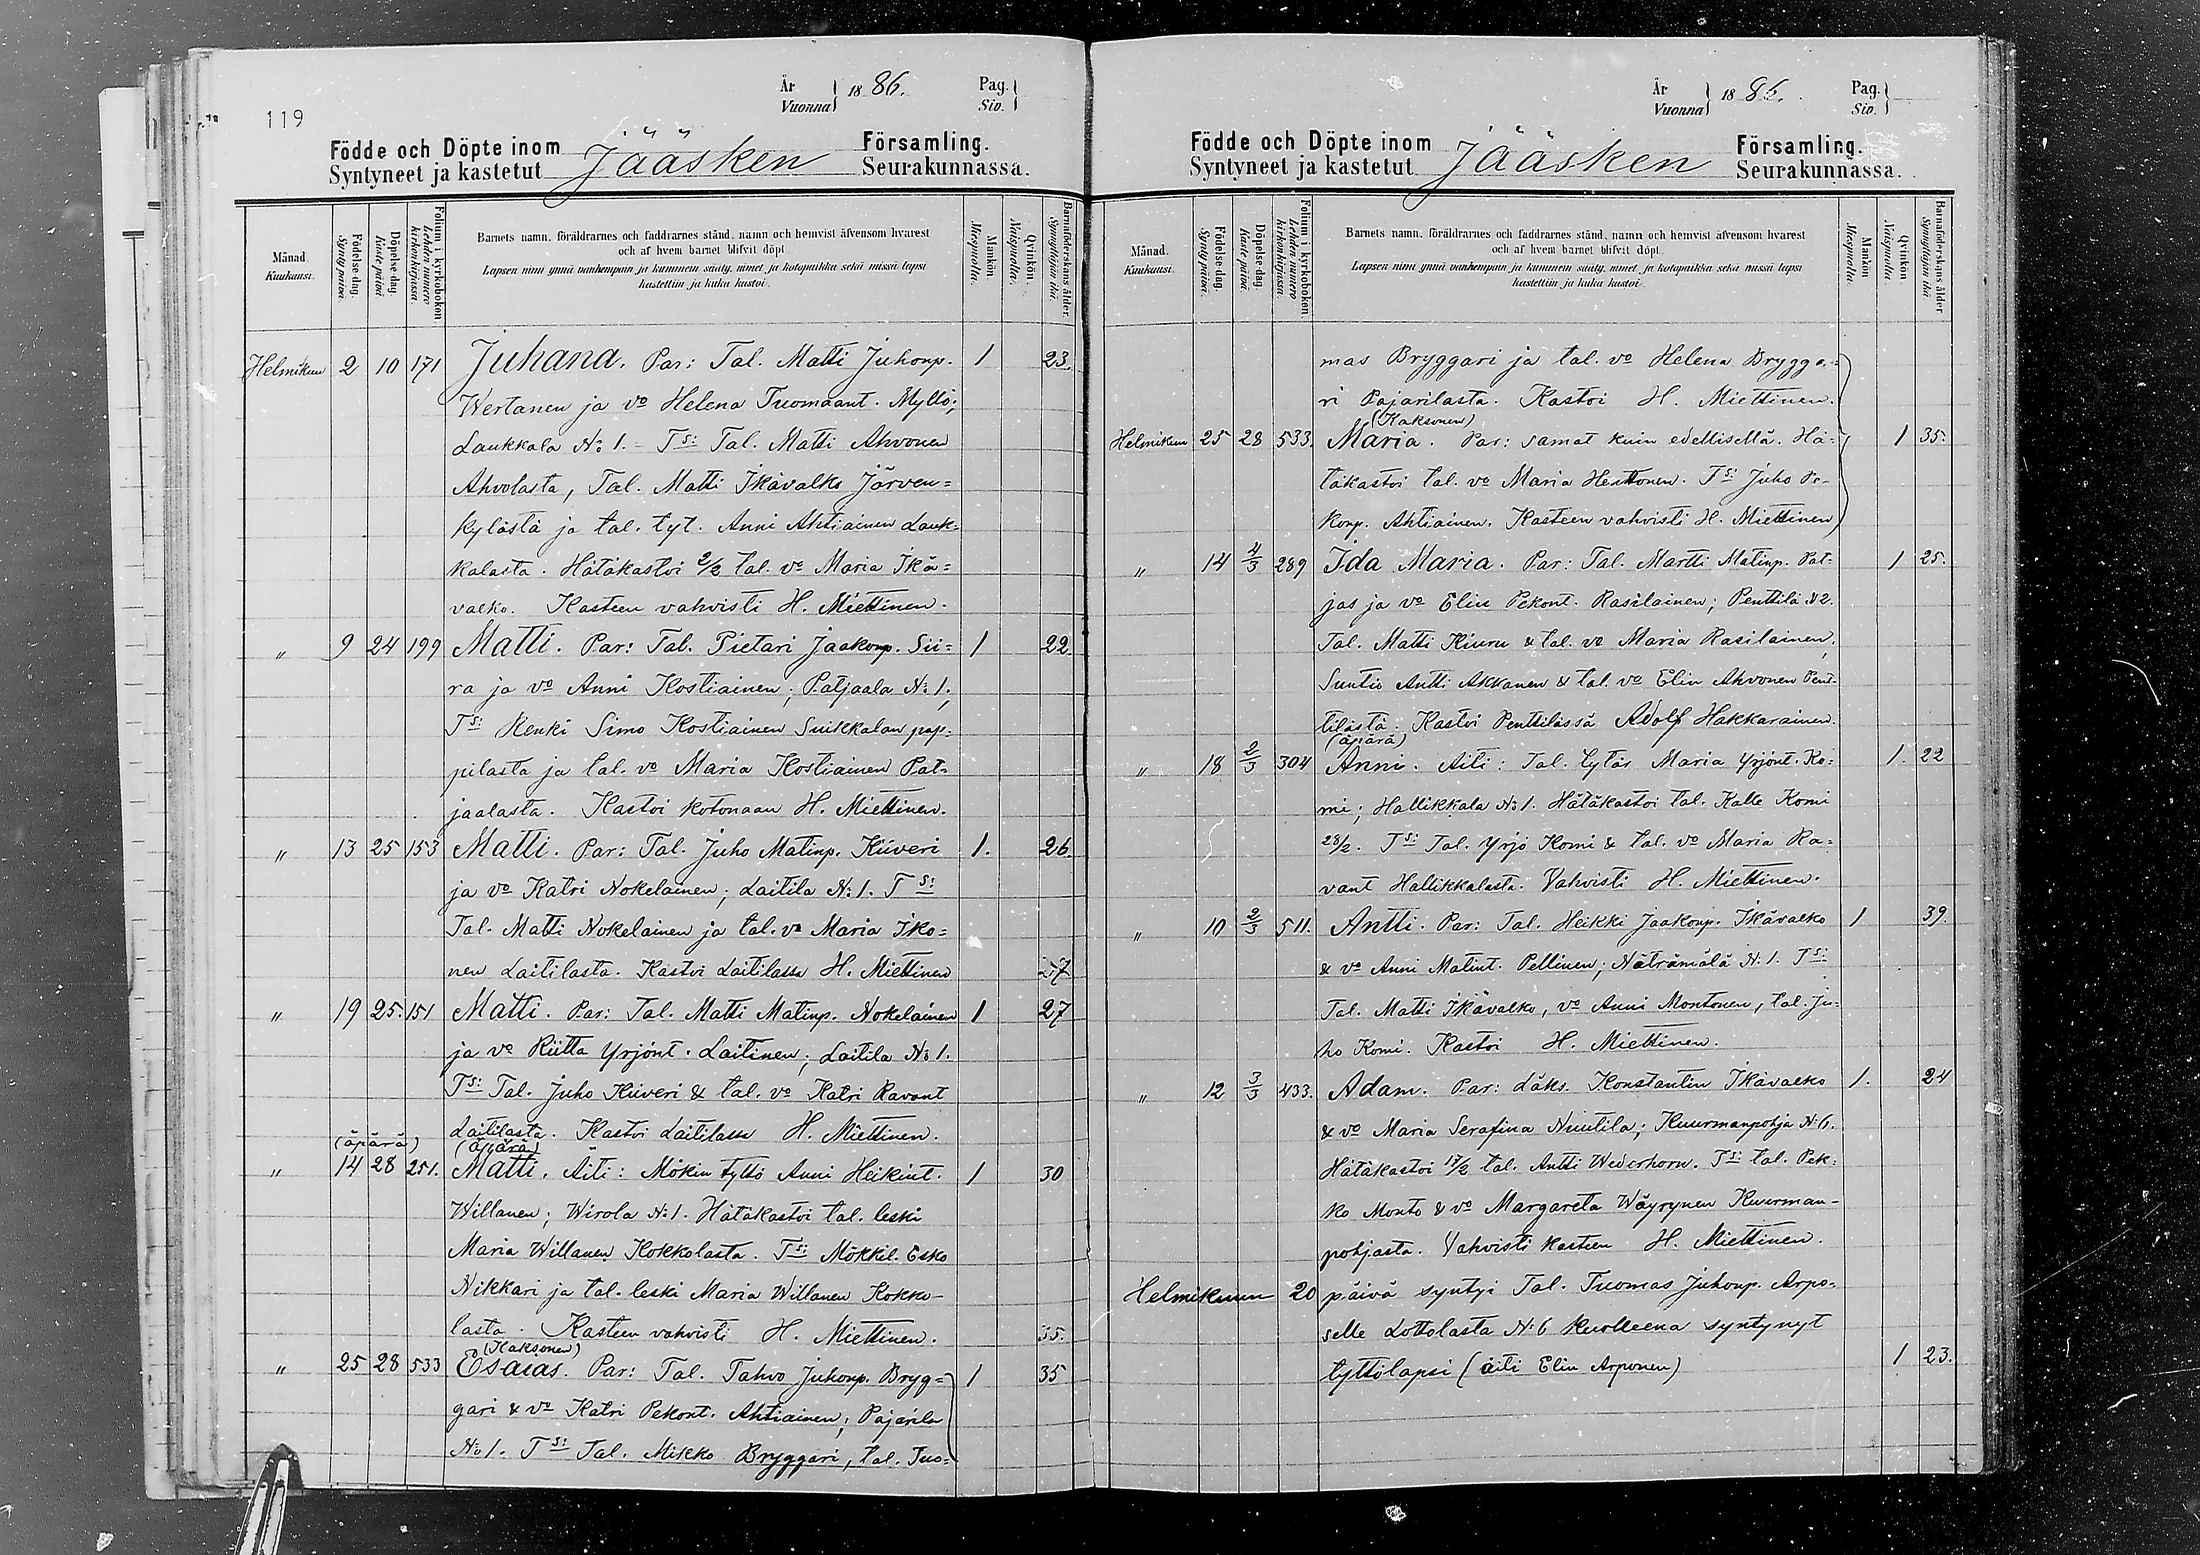 119
År
Vuonna
1886.
Pag.
Siv.
Födde och Döpte inom
Syntyneet ja kastetut
Jääsken
Församling.
Seurakunnassa.
Månad.
Kuukausi.
Födelse-dag.
Syntypäivä.
Döpelse-dag.
Kastepäivä
Folium i kyrkoboken
Lehden numero kirkonkirjassa.
Barnets namn, föräldrarnes och faddrarnes stånd, namn och hemvist äfvensom hvarest
och af hvem barnet blifvit döpt.
Lapsen nimi ynnä vanhempain ja kummein sääty, nimet ja kotopaikka sekä missä lapsi
kastettiin ja kuka kastoi.
Mankön.
Miespuolta.
Qvinkön.
Vaispuolta.
Barnaföderskans ålder
Synnyttäjän ikä
Helmikuu 2 10 171 Juhana. Par: Tal. Matti Juhonp. 1 23.
Wertanen ja vo Helena Tuomaant. Myllö;
Laukkala No 1. - Ts: Tal. Matti Ahvonen
Ahvolasta, Tal. Matti Ikävalko Järven=
kylästä ja tal. tyt. Anni Ahtiainen Lauk=
kalasta. Hätäkastoi 2/2 tal. vo Maria Ikä=
valko. Kasteen vahvisti H. Miettinen.
" 9 24 199 Matti. Par: Tal. Pietari Jaakonp. Sii= 1 22.
ra ja vo Anni Kostiainen; Patjaala No 1,
Ts: Renki Simo Kostiainen Suikkalan pap=
pilasta ja tal. vo Maria Kostiainen Pat=
jaalasta. Kastoi kotonaan H. Miettinen.
" 13 25 153 Matti. Par: Tal. Juho Matinp. Kiiveri 1. 26.
ja vo Katri Nokelainen; Laitila No 1. Ts:
Tal. Matti Nokelainen ja tal. vo Maria Iko=
nen Laitilasta. Kastoi Laitilassa H. Miettinen 27
" 19 25. 151 Matti. Par: Tal. Matti Matinp. Nokelainen 1 27
ja vo Riitta Yrjönt. Laitinen; Laitila No 1.
Ts: Tal. Juho Kiiveri & tal. vo Katri Ravant
Laitilasta. Kastoi Laitilassa H. Miettinen.
(äpärä) (äpärä)
" 14 28 251. Matti. Äiti: Mökin tyttö Anni Heikint. 1 30
Willanen; Wirola No 1. Hätäkastoi tal. leski
Maria Willanen Kokkolasta. Ts: Mökkil. Esko
Nikkari ja tal. leski Maria Willanen Kokko-
lasta. Kasteen vahvisti H. Miettinen. 35.
(Kaksonen)
" 25 28 533 Esaias. Par: Tal. Tahvo Juhonp. Bryg= 1 35
gari & vo Katri Pekont. Ahtiainen; Pajarila
No 1. Ts: Tal. Mikko Bryggari, tal. Tuo=
År
Vuonna
1886.
Pag.
Siv.
Födde och Döpte inom
Syntyneet ja kastetut
Jääsken
Församling.
Seurakunnassa.
Månad.
Kuukausi.
Födelse-dag.
Syntypäivä.
Döpelse-dag.
Kastepäivä.
Folium i kyrkoboken
Lehden numero kirkonkirjassa.
Barnets namn, föräldrarnes och faddrarnes stånd, namn och hemvist äfvensom hvarest
och af hvem barnet blifvit döpt.
Lapsen nimi ynnä vanhempain ja kummein sääty, nimet ja kotopaikka sekä missä lapsi
kastettiin ja kuka kastoi.
Mankön.
Miespuolta.
Qvinkön.
Vaispuolta.
Barnaföderskans ålder
Synnyttäjän ikä
mas Bryggari ja tal. vo Helena Brygga=
ri Pajarilasta. Kastoi H. Miettinen.
(Kaksonen)
Helmikuu 25 28 533. Maria. Par: samat kuin edellisellä. Hä= 1 35.
täkastoi tal. vo Maria Henttonen. Ts: Juho Pe-
konp. Ahtiainen. Kasteen vahvisti H. Miettinen
" 14 4/3 289 Ida Maria. Par: Tal. Martti Matinp. Pat= 1 25.
jas ja vo Elin Pekont. Rasilainen; Penttilä No 2.
Tal. Matti Kiuru & tal. vo Maria Rasilainen,
Suntio Antti Akkanen & tal. vo Elin Ahvonen Pent-
tilästä. Kastoi Penttilässä Adolf Hakkarainen.
(äpärä)
" 18 2/3 304 Anni. Äiti: Tal. tytär Maria Yrjönt. Ko= 1. 22
mi; Hallikkala No 1. Hätäkastoi tal. Kalle Komi
28/2. Ts: Tal. Yrjö Komi & tal. vo Maria Ra=
vant Hallikkalasta. Vahvisti H. Miettinen.
" 10 2/3 511. Antti. Par: Tal. Heikki Jaakonp. Ikävalko 1 39.
& vo Anni Matint. Pellinen; Näträmälä No 1. Ts:
Tal. Matti Ikävalko, vo Anni Montonen, tal. Ju=
ho Komi. Kastoi H. Miettinen.
" 12 3/3 433. Adam. Par: Läks. Konstantin Ikävalko 1. 24
& vo Maria Serafina Nuutila; Kuurmanpohja No 6.
Hätäkastoi 17/2 tal. Antti Wederhorn. Ts: tal. Pek=
ko Monto & vo Margareta Wäyrynen Kuurman-
pohjasta. Vahvisti kasteen H. Miettinen.
Helmikuun 20 päivä syntyi Tal. Tuomas Juhonp. Arpo=
selle Lottolasta No 6 kuolleena syntynyt
tyttölapsi (äiti Elin Arponen) 1 23.